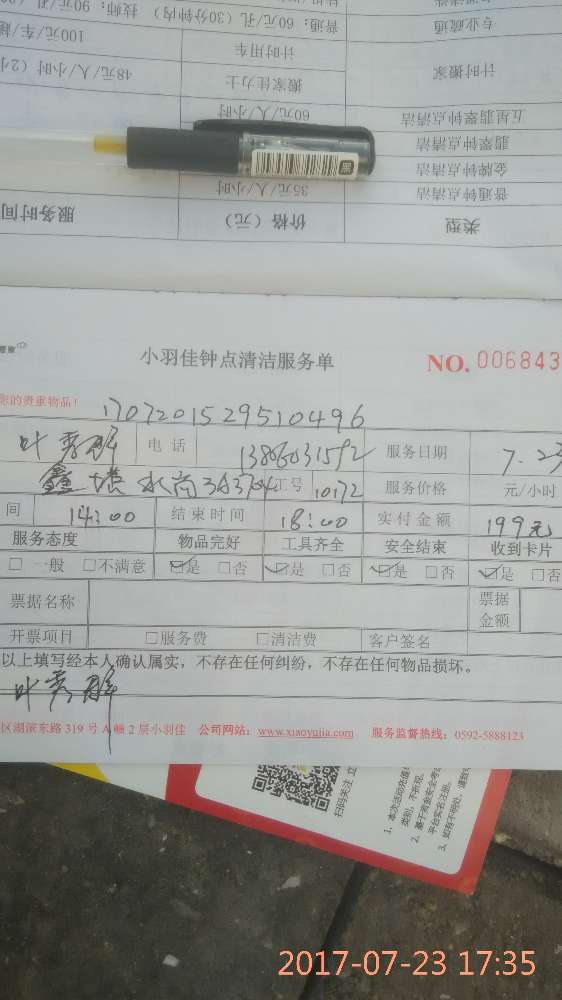 普通：60元/孔（30分钟内） 技师：90元/
专业疏通
100元/车/
计时用车
计时搬家
48元/人/小时（2小
搬家佳力士
60元/人/小时
五星翡翠钟点清洁
翡翠钟点清洁
金牌钟点清洁
35元/人/小时
普通钟点清洁
服务时间
价格（元）
类型
小羽佳钟点清洁服务单
NO. 006843
您的贵重物品！
1707201529510496
电话
服务日期
7.23
工号 10172
服务价格
元/小时
间 14:00 结束时间 18:00 实付金额 199元
服务态度 物品完好 工具齐全 安全结束 收到卡片
□ 一般 □不满意 ☑是 □否 ☑是 □否 ☑是 □否 ☑是 □否
票据名称 票据金额
开票项目 □服务费 □清洁费 客户签名
以上填写经本人确认属实，不存在任何纠纷，不存在任何物品损坏。
区湖滨东路 319 号 A 幢 2 层小羽佳 公司网站：www.xiaoyujia.com 服务监督热线：0592-5888123
扫码关注 立
1、本次活动充值
类别，不折现。
2、基于资金安全考
平台实名注册。
3、如有不明处，请致
2017-07-23 17:35